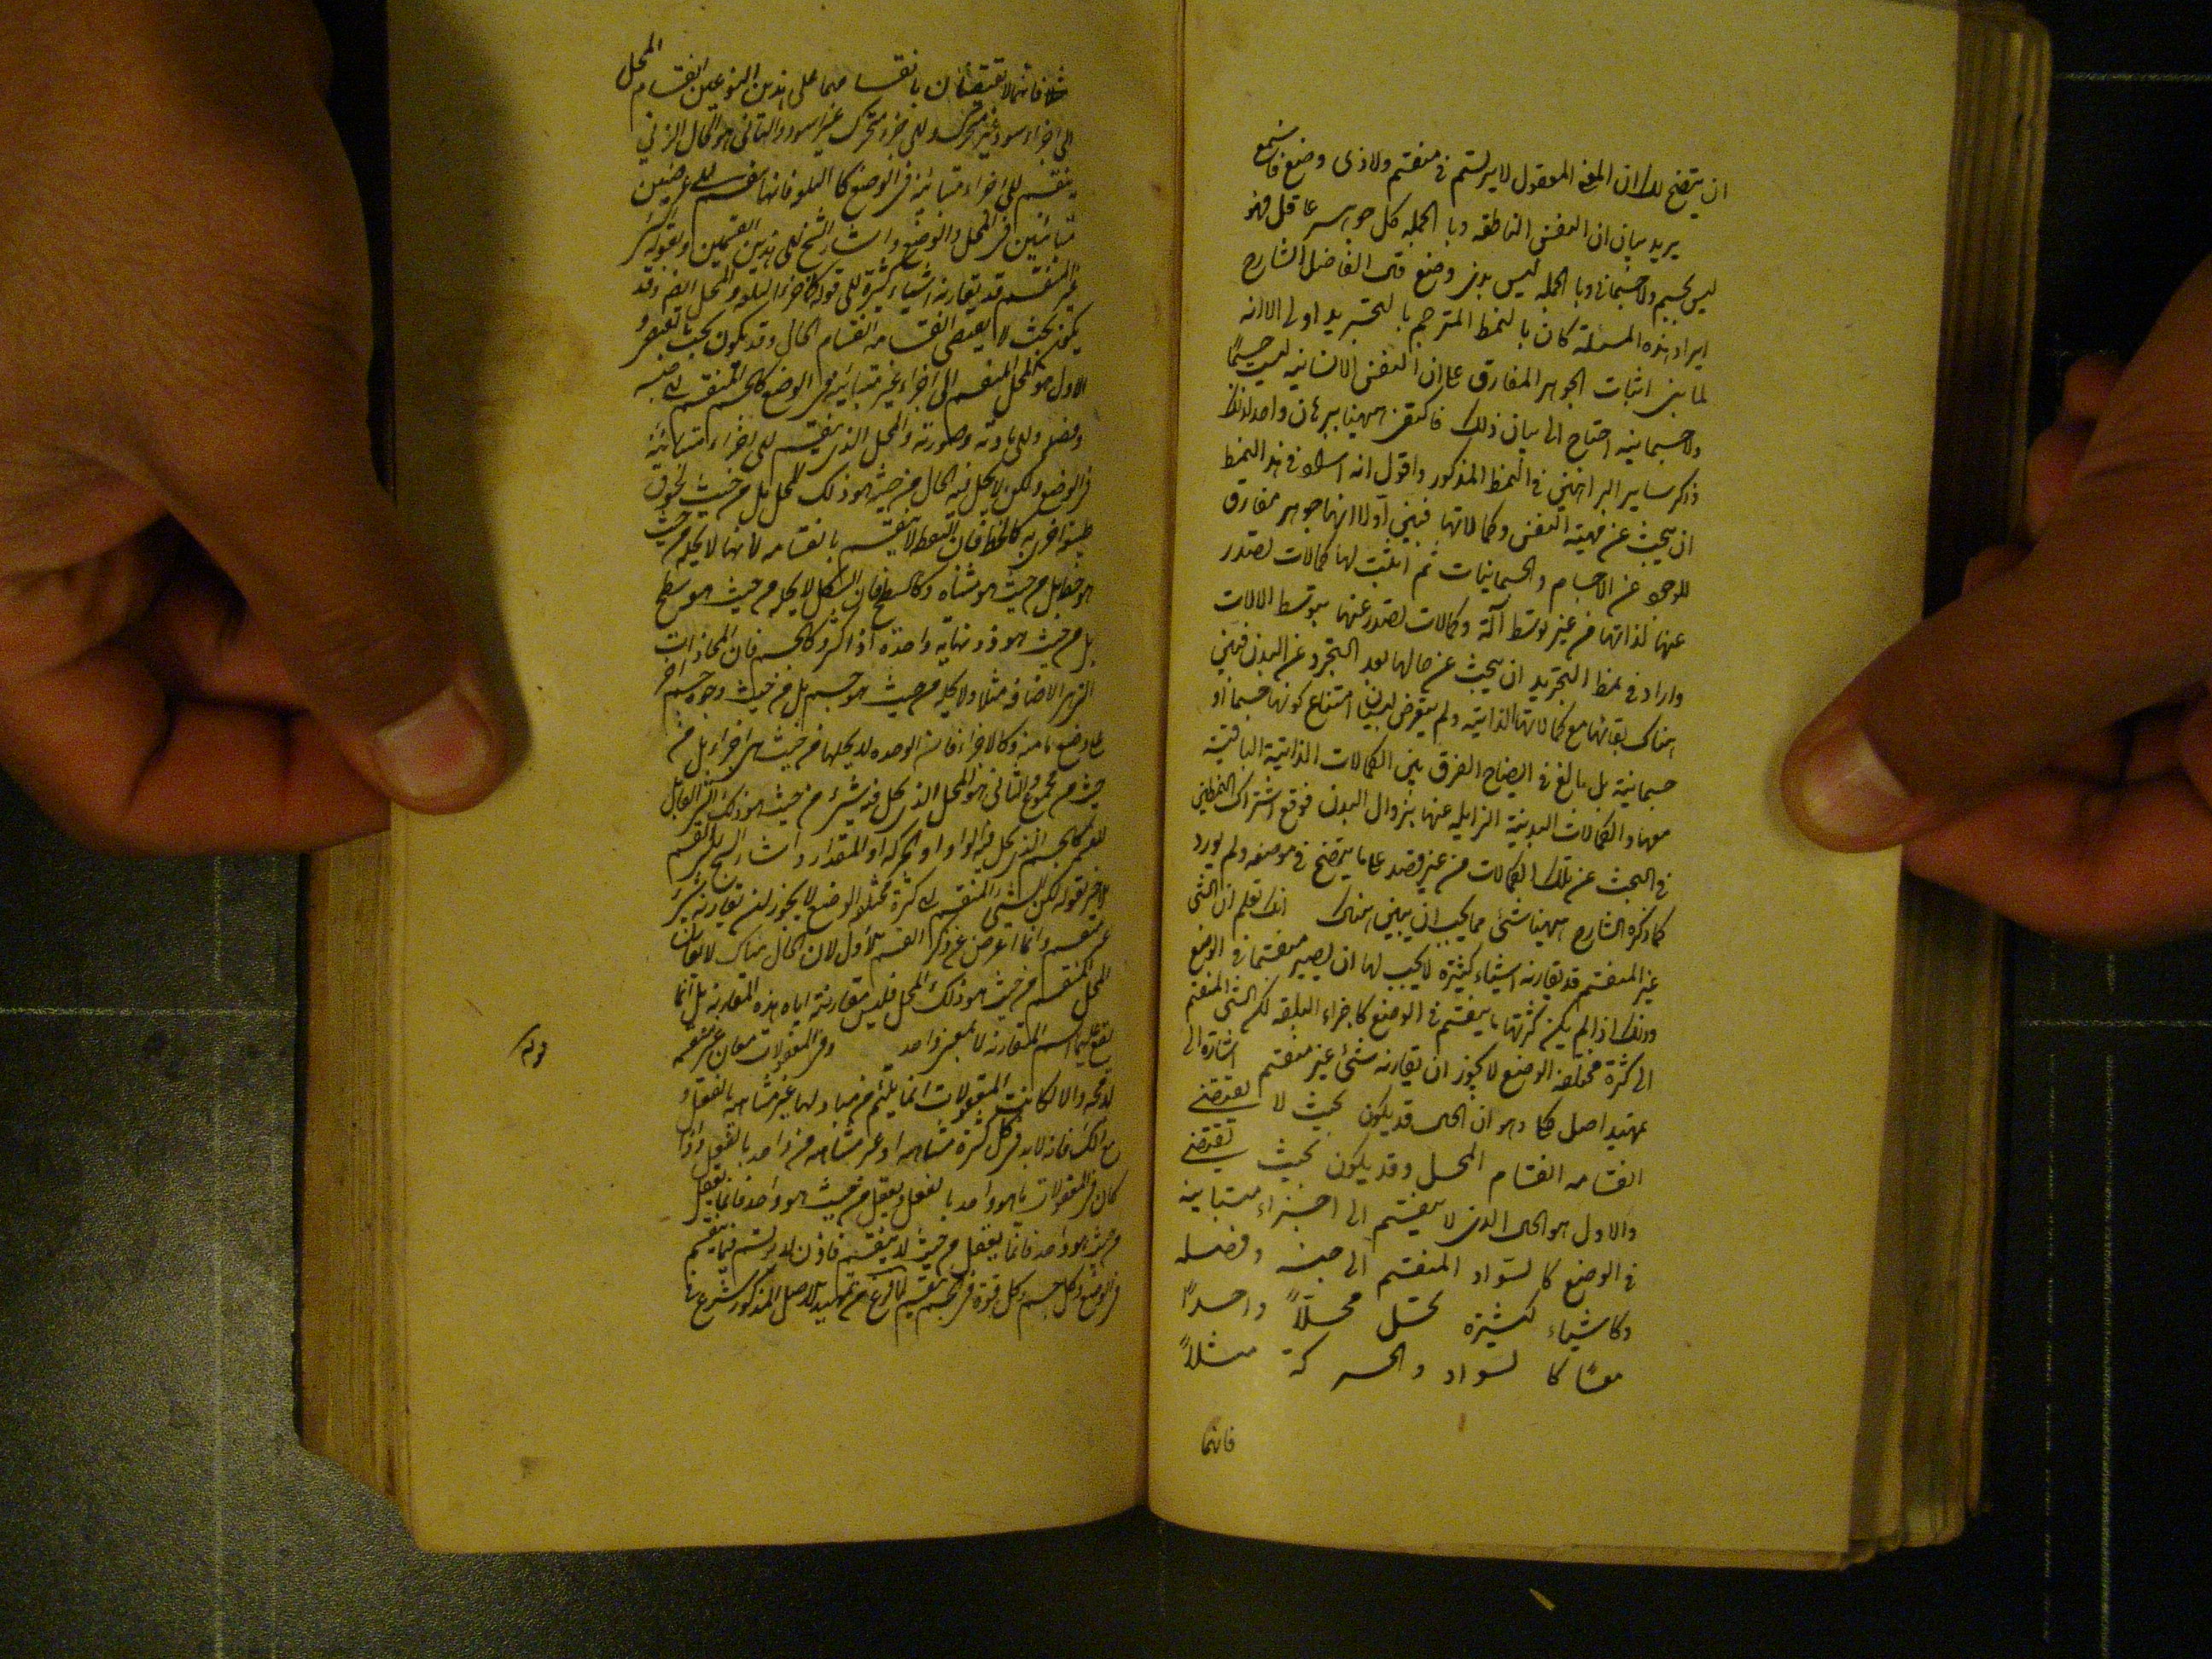 ان يتضح لك ان المعنى المعقول لا يرتسم فى منقسم ولا ذى وضع فاسمع
يريد بيان ان النفس الناطقه وبا الجمله كل جوهر عاقل فهو
ليس بجسم ولا جسمانى وبا الجمله ليس بذى وضع قال الفاضل الشارح
ايراد هذه المسئلة كان بالنمط المترجم بالتجريد اولى الا انه
لما بنى اثبات الجوهر المفارق على ان النفس الانسانيه ليست جسمًا
ولا جسمانيه احتاج الى بيان ذلك فاكتفى ههنا ببرهان واحد لذلك
ذكر ساير البراهين فى النمط المذكور واقول انه اراد فى هذا النمط
ان يبحث عن مهية النفس وكمالاتها فبين اولا انها جوهر مفارق
الوجود عن الاجسام والجسمانيات ثم اثبت لها كمالات تصدر
عنها لذاتها من غير توسط آلة وكمالات تصدر عنها بتوسط الالات
واراد فى نمط التجريد ان يبحث عن حالها بعد التجرد عن البدن فبين
هناك بقائها مع كمالاتها الذاتيه ولم يتعرض لبيان امتناع كونها جسما او
جسمانية بل بالغ فى ايضاح الفرق بين الكمالات الذاتية الباقية
معها والكمالات البدنية الزايله عنها بزوال البدن فوقع اشتراك النمطين
فى البحث عن تلك الكمالات من غير قصد على ما يتضح فى موضعه ولم يورد
كما ذكره الشارح ههنا شئ مما يجب ان يبين هناك انك تعلم ان الشئ
غير المنقسم قد يقارنه اشياء كثيرة لا يجب لها ان يصير منقسما فى الوضع
وذلك اذا لم يكن كثرتها ما ينقسم فى الوضع كاجزاء البلقه لكن الشئ المنقسم
الى كثرة مختلفه الوضع لا يجوز ان يقارنه شئ غير منقسم اشارة الى
تمهيد اصل كما وهو ان الحال قد يكون بحيث لا يقتضى
انقسامه انقسام المحل وقد يكون بحيث يقتضى
والاول هو الحال الذى لا ينقسم الى اجزاء متباينه
فى الوضع كالسواد المنقسم الى جنسه وفصله
وكاشياء كثيرة تحل محلاً واحداً
معًا كالسواد والحركة مثلاً
فانهما
فانهما لا تقتضيان بانقسامهما على هذين النوعين انقسام المحل
الى اجزاء سود غير متحرك والى جزء متحرك غير اسود والثانى هو الحال الذى
ينقسم الى اجزاء متباينة فى الوضع كا البلقه فانها تنقسم الى عرضين
متباينين فى المحل والوضع واشار الشيخ الى هذين القسمين وبقوله الشئ
غير المنقسم قد يقارنه اشياء كثيرة الى قوله كاجزاء البلقه والمحل ايضا وقد
يكون بحيث لا يقتضى انقسامه انقسام الحال وقد يكون بحيث يقتضى و
الاول هو المحل المنقسم الى اجزاء غير متباينة فى الوضع كالجسم المنقسم الى جنسه
وفصله والى مادته وصورته والمحل الذى ينقسم الى اجزاء متباينة
فى الوضع ولكن لا يحل فيه الحال من حيث هو ذلك المحل بل من حيث لحوق
طبيعة اخرى به كالخط فان النقطة لا ينقسم بانقسامه لانها لا يحله من حيث
هو خط بل من حيث هو متناه وكالسطح فان الشكل لا يحله من حيث هو سطح
بل من حيث هو ذو نهاية واحدة او اكثر وكالجسم فان المحاذات
التى هى الاضافه مثلا ولا يحله من حيث هو جسم بل من حيث وجود جسم اخر
على وضع ما منه وكالاجزاء فان الوحده لا يحلها من حيث هى اجزاء بل من
حيث هى مجموع والثانى هو المحل الذى يحل فيه شئ من حيث هو ذلك الشئ القابل
للقسمة كالجسم الذى يحل فيه السواد او الحركة او المقدار واشار الشيخ الى القسم
الاخير بقوله لكن الشئ المنقسم الى كثرة مختلفة الوضع لا يجوز ان يقارنه شئ
غير منقسم وانما اعرض عن ذكر القسم الاول لان الحال هناك لا يقارن
المحل المنقسم من حيث هو ذلك المحل فليس مقارنة اياه هذه المقارنه بل انما
تقع عليهما اسم المقارنه لا بمعنى واحد وفى المعقولات معان غير منقسمة
قوله
لا محه والا لكانت المعقولات انما يلتئم من مبادلها غير متناهيه بالفعل و
مع ذلك فانه لا بد فى كل كثرة متناهيه او غير متناهيه من واحد بالفعل واذا
كان فى المعقولات ما هو واحد بالفعل ويعقل من حيث هو واحد فانما يعقل
من حيث هو واحد فانما يعقل من حيث لا ينقسم فاذن لا يرتسم فيما ينقسم
فى الوضع وكل جسم وكل قوة فى جسم منقسم لما فرغ من تمهيد الاصل المذكور شرع فى